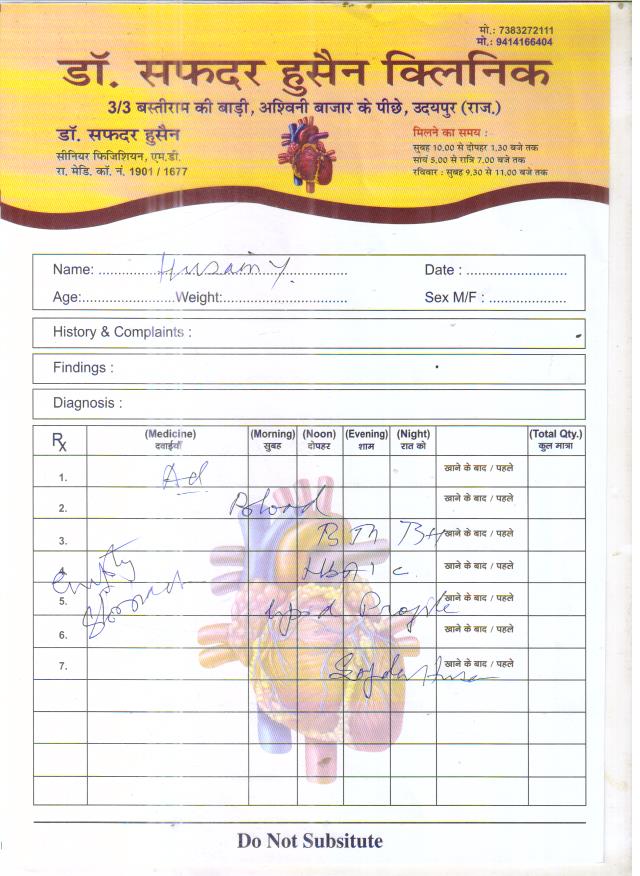 मो.: 7383272111
मो.: 9414166404
डॉ. सफदर हुसैन क्लिनिक
3/3 बस्तीराम की बाड़ी, अश्विनी बाजार के पीछे, उदयपुर (राज.)
डॉ. सफदर हुसैन
सीनियर फिजिशियन, एम.डी.
रा. मेडि. कॉ. नं. 1901 / 1677
मिलने का समय :
सुबह 10.00 से दोपहर 1.30 बजे तक
सायं 5.00 से रात्रि 7.00 बजे तक
रविवार : सुबह 9.30 से 11.00 बजे तक
Name: Husain Y. Date :
Age: Weight: Sex M/F :
History & Complaints :
Findings :
Diagnosis :
Rx (Medicine) (Morning) (Noon) (Evening) (Night) (Total Qty.)
दवाईयाँ सुबह दोपहर शाम रात को कुल मात्रा
1. Ad खाने के बाद / पहले
2. Blood खाने के बाद / पहले
3. खाने के बाद / पहले
4. HbA1c. खाने के बाद / पहले
Empty
5. Lipid Profile खाने के बाद / पहले
Stomach
6. खाने के बाद / पहले
7. खाने के बाद / पहले
Do Not Subsitute